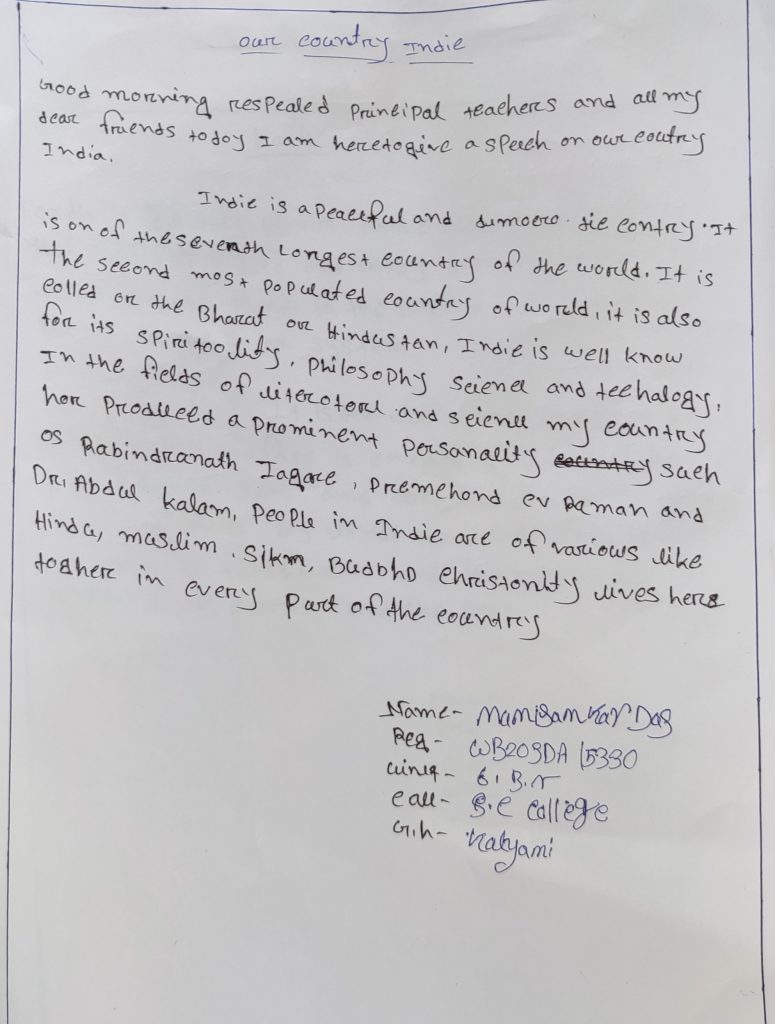 our country Indie
Good morning respealed principal teachers and all my
dear friends today I am heretogive a speech on our coutry
India.
Indie is a peaceful and dumocro. tie contry. It
is on of the seventh longest country of the world. It is
the second most populated country of world, it is also
colled on the Bharat our Hindustan, Indie is well know
for its spiritoolity, philosophy science and teehalogy,
In the fields of literotore and science my country
hor produced a prominent personality country such
os Rabindranath Tagore, premchond cv Raman and
Dr. Abdul Kalam, people in Indie are of various like
Hindu, muslim, Sikm, Buddho Christonity lives here
togher in every part of the country
Name- Manisankar Das
Reg- WB20SDA 15330
6. B.N
Call- B.C College
G.h- Kalyami